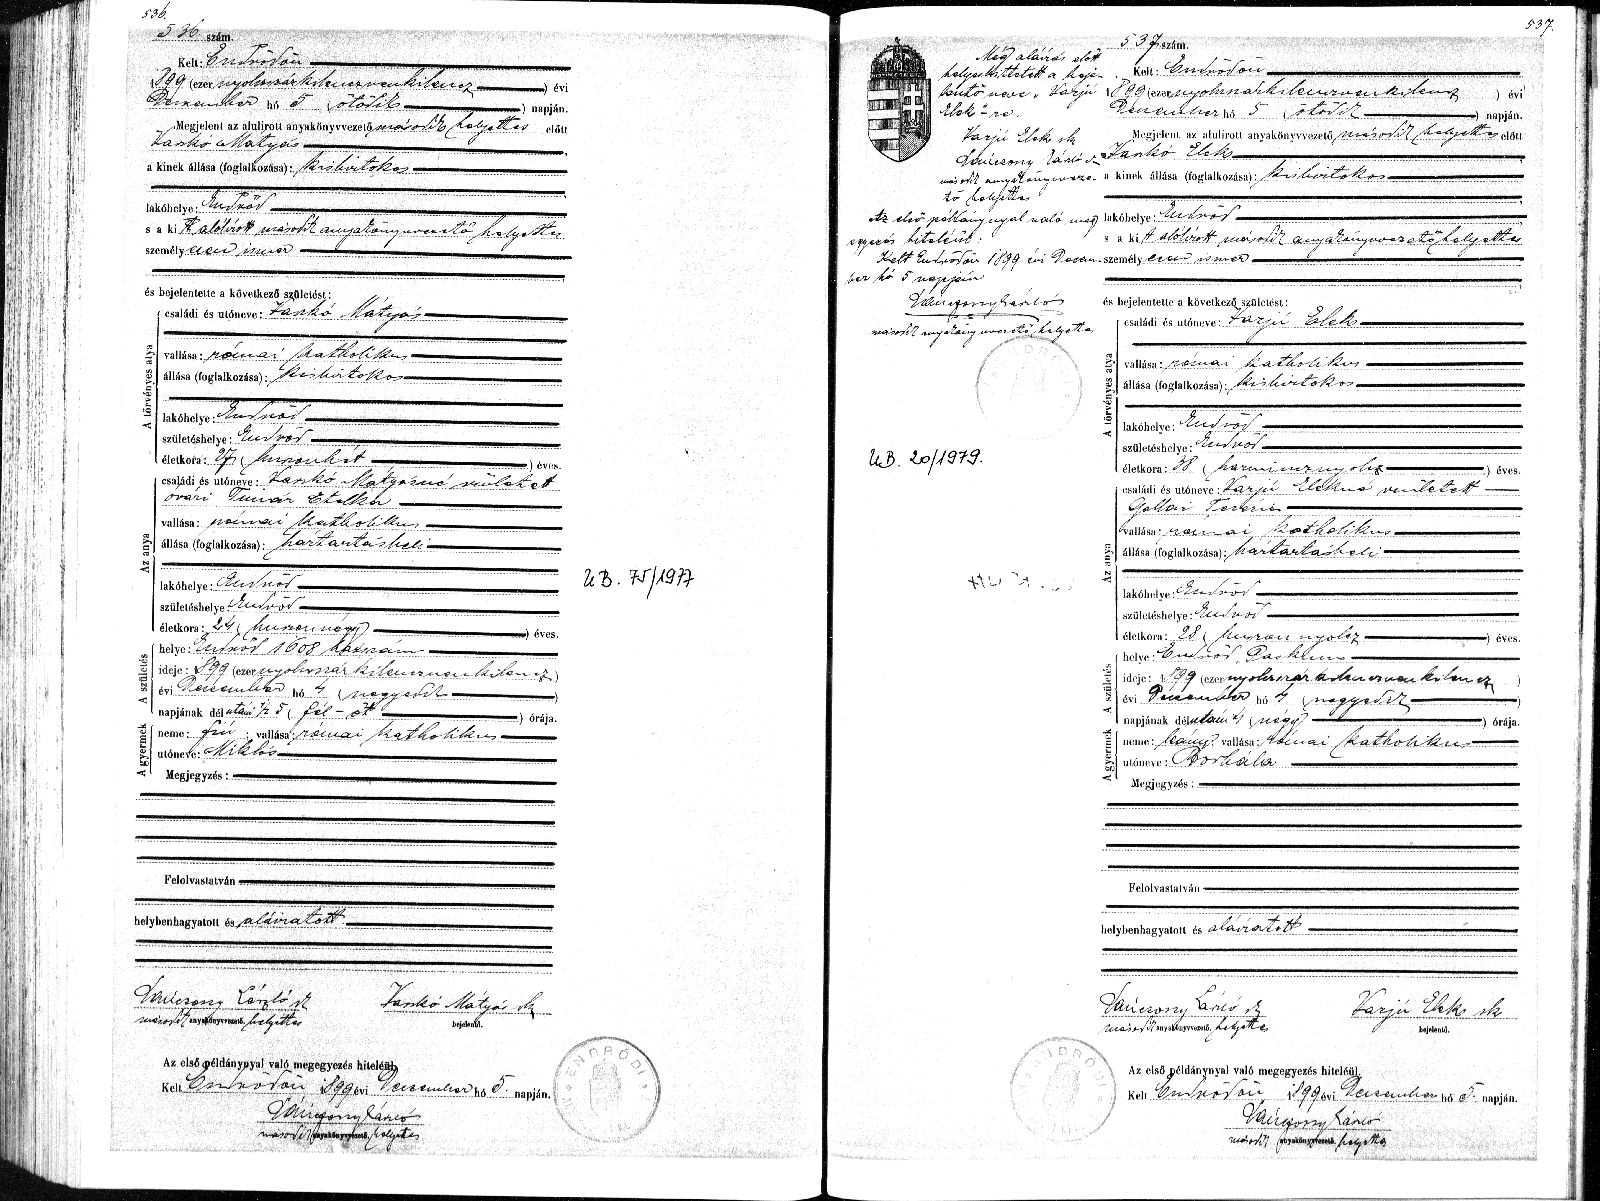 536.
536 szám.
Kelt: Endrődön
1899 (ezer nyolcszázkilencvenkilencz) évi
December hó 5 (ötödik) napján.
Megjelent az alulirott anyakönyvvezető második helyettes előtt
Vaskó Mátyás
a kinek állása (foglalkozása): kisbirtokos
lakóhelye: Endrőd
s a kit alólírott második anyakönyvvezető helyettes
személyesen ismer
és bejelentette a következő születést:
A törvényes atya
családi és utóneve: Vaskó Mátyás
vallása: római katholikus
állása (foglalkozása): kisbirtokos
lakóhelye: Endrőd
születéshelye: Endrőd
életkora: 27 (huszonhét) éves.
Az anya
családi és utóneve: Vaskó Mátyásné született
óvári Timár Etelka
vallása: római katholikus
állása (foglalkozása): háztartásbeli
lakóhelye: Endrőd
születéshelye: Endrőd
életkora: 24 (huszonnégy) éves.
A születés
helye: Endrőd 1608 házszám
ideje: 1899 (ezer nyolcszázkilencvenkilencz)
évi December hó 4 (negyedik)
napjának délutáni 1/2 5 (fél-öt) órája.
A gyermek
neme: fiú; vallása: római katholikus
utóneve: Miklós
Megjegyzés:
Felolvastatván
helybenhagyatott és aláiratott
László sk Vaskó Mátyás sk
második anyakönyvvezető helyettes bejelentő.
Az első példánynyal való megegyezés hiteléül,
Kelt Endrődön 1899 évi December hó 5. napján.
László
második anyakönyvvezető helyettes
ENDRŐDI
UB. 75/1977
537.
537 szám.
Még aláírás előtt
helyesbittetett a beje-
lentő neve "Varjú
Elek"-re.
Varjú Elek sk
László sk
második anyakönyvveze-
tő helyettes
Az első példánynyal való meg
egyezés hiteléül:
Kelt Endrődön 1899 évi Decem-
ber hó 5 napján
László
második anyakönyvvezető helyettes
UB. 20/1979.
Kelt: Endrődön
1899 (ezer nyolcszázkilencvenkilencz) évi
December hó 5 (ötödik) napján.
Megjelent az alulirott anyakönyvvezető második helyettes előtt
Vaskó Elek
a kinek állása (foglalkozása): kisbirtokos
lakóhelye: Endrőd
s a kit alólírott második anyakönyvvezető helyettes
személyesen ismer
és bejelentette a következő születést:
A törvényes atya
családi és utóneve: Varjú Elek
vallása: római katholikus
állása (foglalkozása): kisbirtokos
lakóhelye: Endrőd
születéshelye: Endrőd
életkora: 38 (harmincznyolcz) éves.
Az anya
családi és utóneve: Varjú Elekné született
Gellai Terézia
vallása: római katholikus
állása (foglalkozása): háztartásbeli
lakóhelye: Endrőd
születéshelye: Endrőd
életkora: 28 (huszonnyolcz) éves.
A születés
helye: Endrőd,
ideje: 1899 (ezer nyolcszázkilencvenkilencz)
évi December hó 4 (negyedik)
napjának délutáni 4 (négy) órája.
A gyermek
neme: leány; vallása: római katholikus
utóneve: Borbála
Megjegyzés:
Felolvastatván
helybenhagyatott és aláiratott
László sk Varjú Elek sk
második anyakönyvvezető, helyettes bejelentő.
Az első példánynyal való megegyezés hiteléül,
Kelt Endrődön 1899 évi December hó 5. napján.
László
második anyakönyvvezető, helyettes
ENDRŐDI